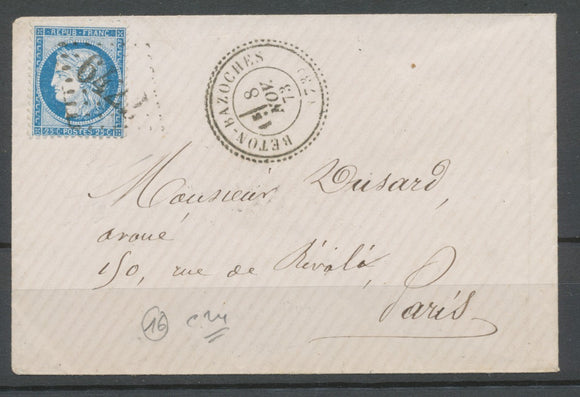 REPUB·FRANC
25 C·POSTES·25 C
BETON-BAZOCHES
8
NOV
73
Monsieur Dusard,
avoué
150, rue de Rivoli,
Paris
16